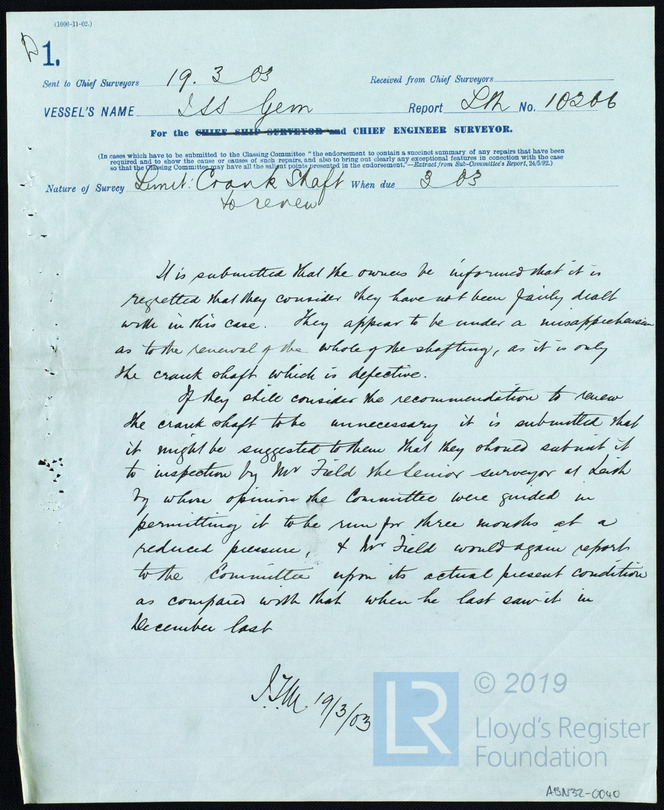 (1000-11-02.)
D 1.
Sent to Chief Surveyors 19. 3 03 Received from Chief Surveyors
VESSEL'S NAME ISS Gem Report Lth No. 10206
For the CHIEF SHIP SURVEYOR and CHIEF ENGINEER SURVEYOR.
(In cases which have to be submitted to the Classing Committee "the endorsement to contain a succinct summary of any repairs that have been
required and to show the cause or causes of such repairs, and also to bring out clearly any exceptional features in conection with the case
so that the Classing Committee may have all the salient points presented in the endorsement."—Extract from Sub-Committee's Report, 24/5/92.)
Nature of Survey Limit: Crank Shaft When due 3 03
to renew
It is submitted that the owners be informed that it is
regretted that they consider they have not been fairly dealt
with in this case. They appear to be under a misapprehension
as to the renewal of the whole of the shafting, as it is only
the crank shaft which is defective.
If they still consider the recommendation to renew
the crank shaft to be unnecessary it is submitted that
it might be suggested to them that they should submit it
to inspection by Mr Field the Senior surveyor at Leith
by whose opinion the Committee were guided in
permitting it to be run for three months at a
reduced pressure, & Mr Field would again report
to the Committee upon its actual present condition
as compared with that when he last saw it in
December last
J.T.M. 19/3/03
LR
© 2019
Lloyd's Register
Foundation
ABN32-0040